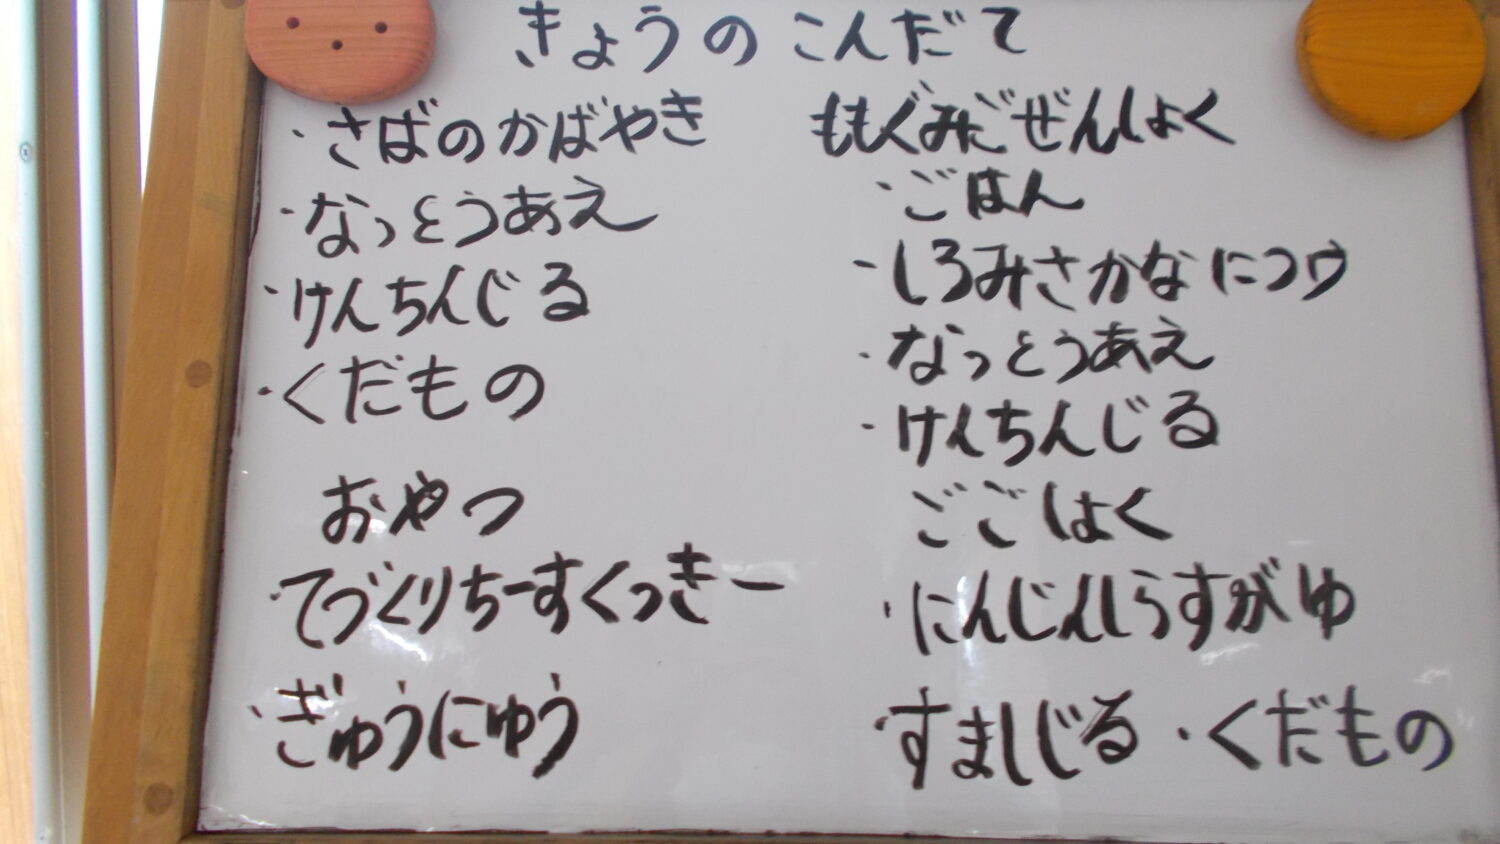 きょうのこんだて
・さばのかばやき
・なっとうあえ
・けんちんじる
・くだもの
おやつ
・てづくりちーずくっきー
・ぎゅうにゅう
ももぐみごぜんしょく
・ごはん
・しろみさかなにつけ
・なっとうあえ
・けんちんじる
ごごしょく
・にんじんしらすがゆ
・すましじる・くだもの